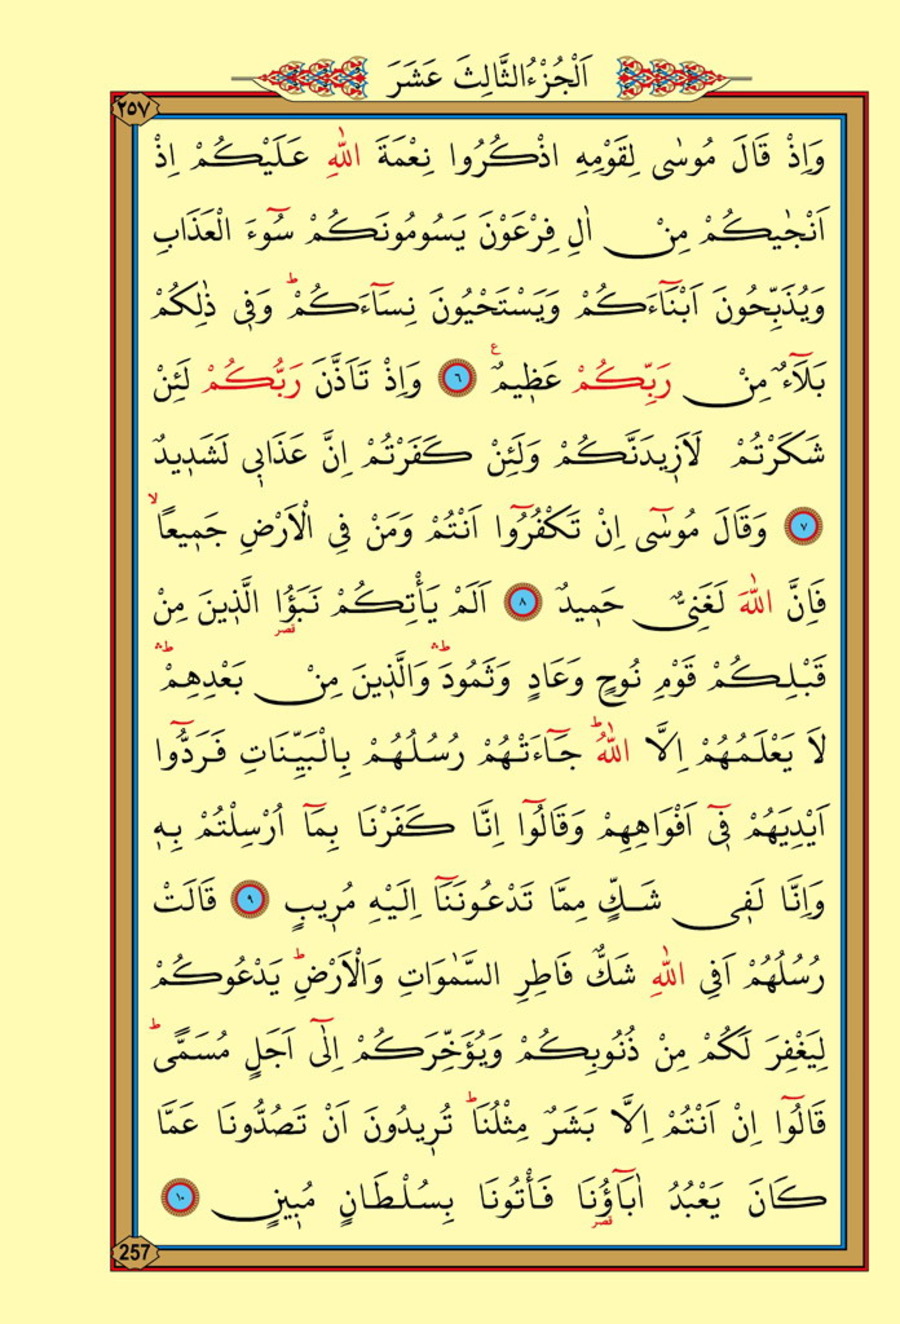 اَلْجُزْءُ الثَّالِثَ عَشَرَ
٢٥٧
وَاِذْ قَالَ مُوسٰى لِقَوْمِهِ اذْكُرُوا نِعْمَةَ اللّٰهِ عَلَيْكُمْ اِذْ
اَنْجٰيكُمْ مِنْ اٰلِ فِرْعَوْنَ يَسُومُونَكُمْ سُٓوءَ الْعَذَابِ
وَيُذَبِّحُونَ اَبْنَٓاءَكُمْ وَيَسْتَحْيُونَ نِسَٓاءَكُمْۜ وَف۪ي ذٰلِكُمْ
بَلَٓاءٌ مِنْ رَبِّكُمْ عَظ۪يمٌ۟ ﴿٦﴾ وَاِذْ تَاَذَّنَ رَبُّكُمْ لَئِنْ
شَكَرْتُمْ لَاَز۪يدَنَّكُمْ وَلَئِنْ كَفَرْتُمْ اِنَّ عَذَاب۪ي لَشَد۪يدٌ
﴿٧﴾ وَقَالَ مُوسٰٓى اِنْ تَكْفُرُٓوا اَنْتُمْ وَمَنْ فِي الْاَرْضِ جَم۪يعًاۙ
فَاِنَّ اللّٰهَ لَغَنِيٌّ حَم۪يدٌ ﴿٨﴾ اَلَمْ يَأْتِكُمْ نَبَؤُا الَّذ۪ينَ مِنْ
قصر
قَبْلِكُمْ قَوْمِ نُوحٍ وَعَادٍ وَثَمُودَۜۛ وَالَّذ۪ينَ مِنْ بَعْدِهِمْۜۛ
لَا يَعْلَمُهُمْ اِلَّا اللّٰهُۜ جَٓاءَتْهُمْ رُسُلُهُمْ بِالْبَيِّنَاتِ فَرَدُّٓوا
اَيْدِيَهُمْ ف۪ٓي اَفْوَاهِهِمْ وَقَالُٓوا اِنَّا كَفَرْنَا بِمَٓا اُرْسِلْتُمْ بِه۪
وَاِنَّا لَف۪ي شَكٍّ مِمَّا تَدْعُونَنَٓا اِلَيْهِ مُر۪يبٍ ﴿٩﴾ قَالَتْ
رُسُلُهُمْ اَفِي اللّٰهِ شَكٌّ فَاطِرِ السَّمٰوَاتِ وَالْاَرْضِۜ يَدْعُوكُمْ
لِيَغْفِرَ لَكُمْ مِنْ ذُنُوبِكُمْ وَيُؤَخِّرَكُمْ اِلٰٓى اَجَلٍ مُسَمًّىۜ
قَالُٓوا اِنْ اَنْتُمْ اِلَّا بَشَرٌ مِثْلُنَاۜ تُر۪يدُونَ اَنْ تَصُدُّونَا عَمَّا
كَانَ يَعْبُدُ اٰبَٓاؤُ۬نَا فَأْتُونَا بِسُلْطَانٍ مُب۪ينٍ ﴿١٠﴾
قصر
257